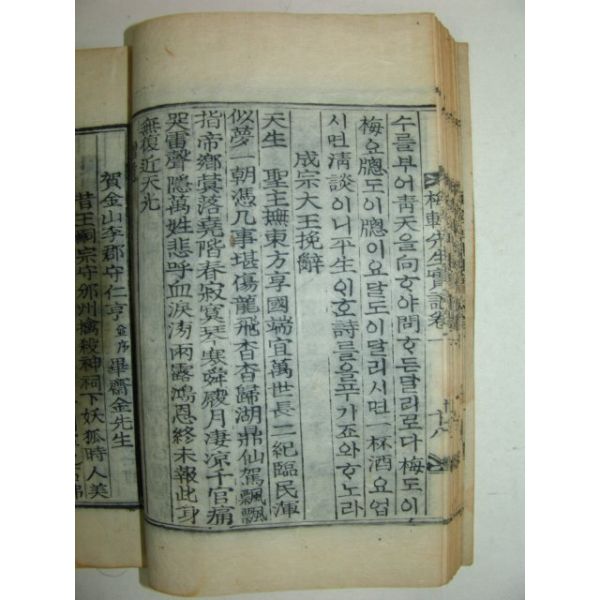 梅軒先生實記卷一
十八
수를부어靑天을向ᄒᆞ야問ᄒᆞ든달라로다梅도이
梅요牕도이牕이요달도이달리시면一杯酒요업
시면淸談이니平生인호詩를을푸가죠와ᄒᆞ노라
成宗大王挽辭
天生 聖主撫東方享國端宜萬世長二紀臨民渾
似夢一朝憑几事堪傷龍飛杳杳歸湖鼎仙駕飄飄
指帝鄕蓂落堯階春寂寞琴寒舜殿月凄凉千官痛
哭雷聲隱萬姓悲呼血淚滂雨露鴻恩終未報此身
無復近天光
賀金山李郡守仁亨 畢齋金先生
昔王嗣宗守邠州禽殺神祠下妖狐時人美